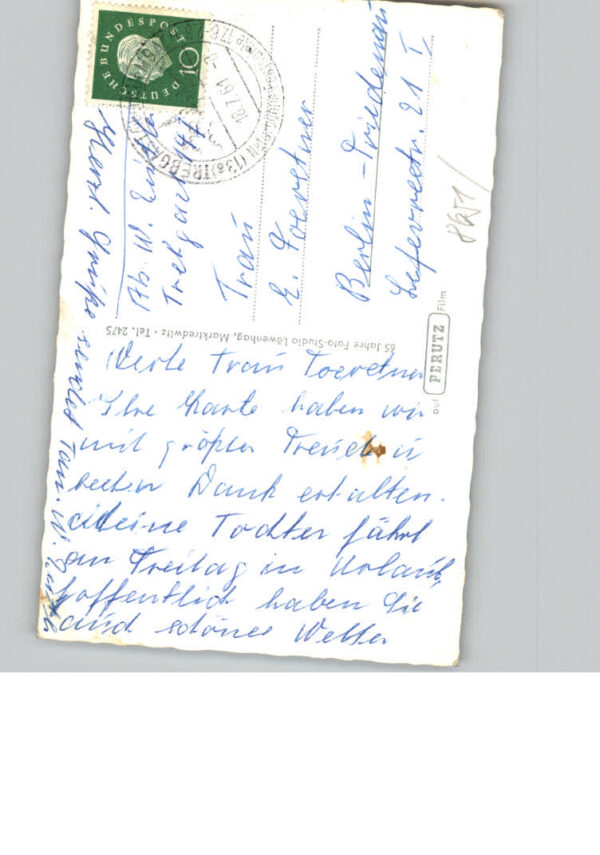 DEUTSCHE BUNDESPOST
10
(13a) TREBGAST
18.7.61
Abs. W.
Trebgast 147
Frau
E. Foerstner
Berlin-Friedenau
Lefevrestr. 21 I
8651/
65 Jahre Foto-Studio Löwenhag, Marktredwitz • Tel. 2475
auf PERUTZ Film
Werte Frau Foerstner
Ihre Karte haben wir
mit größter Freude u
besten Dank erhalten.
Meine Tochter fährt
am Freitag in Urlaub,
hoffentlich haben Sie
auch schönes Wetter
Herzl. Grüße sendet Fam. W.